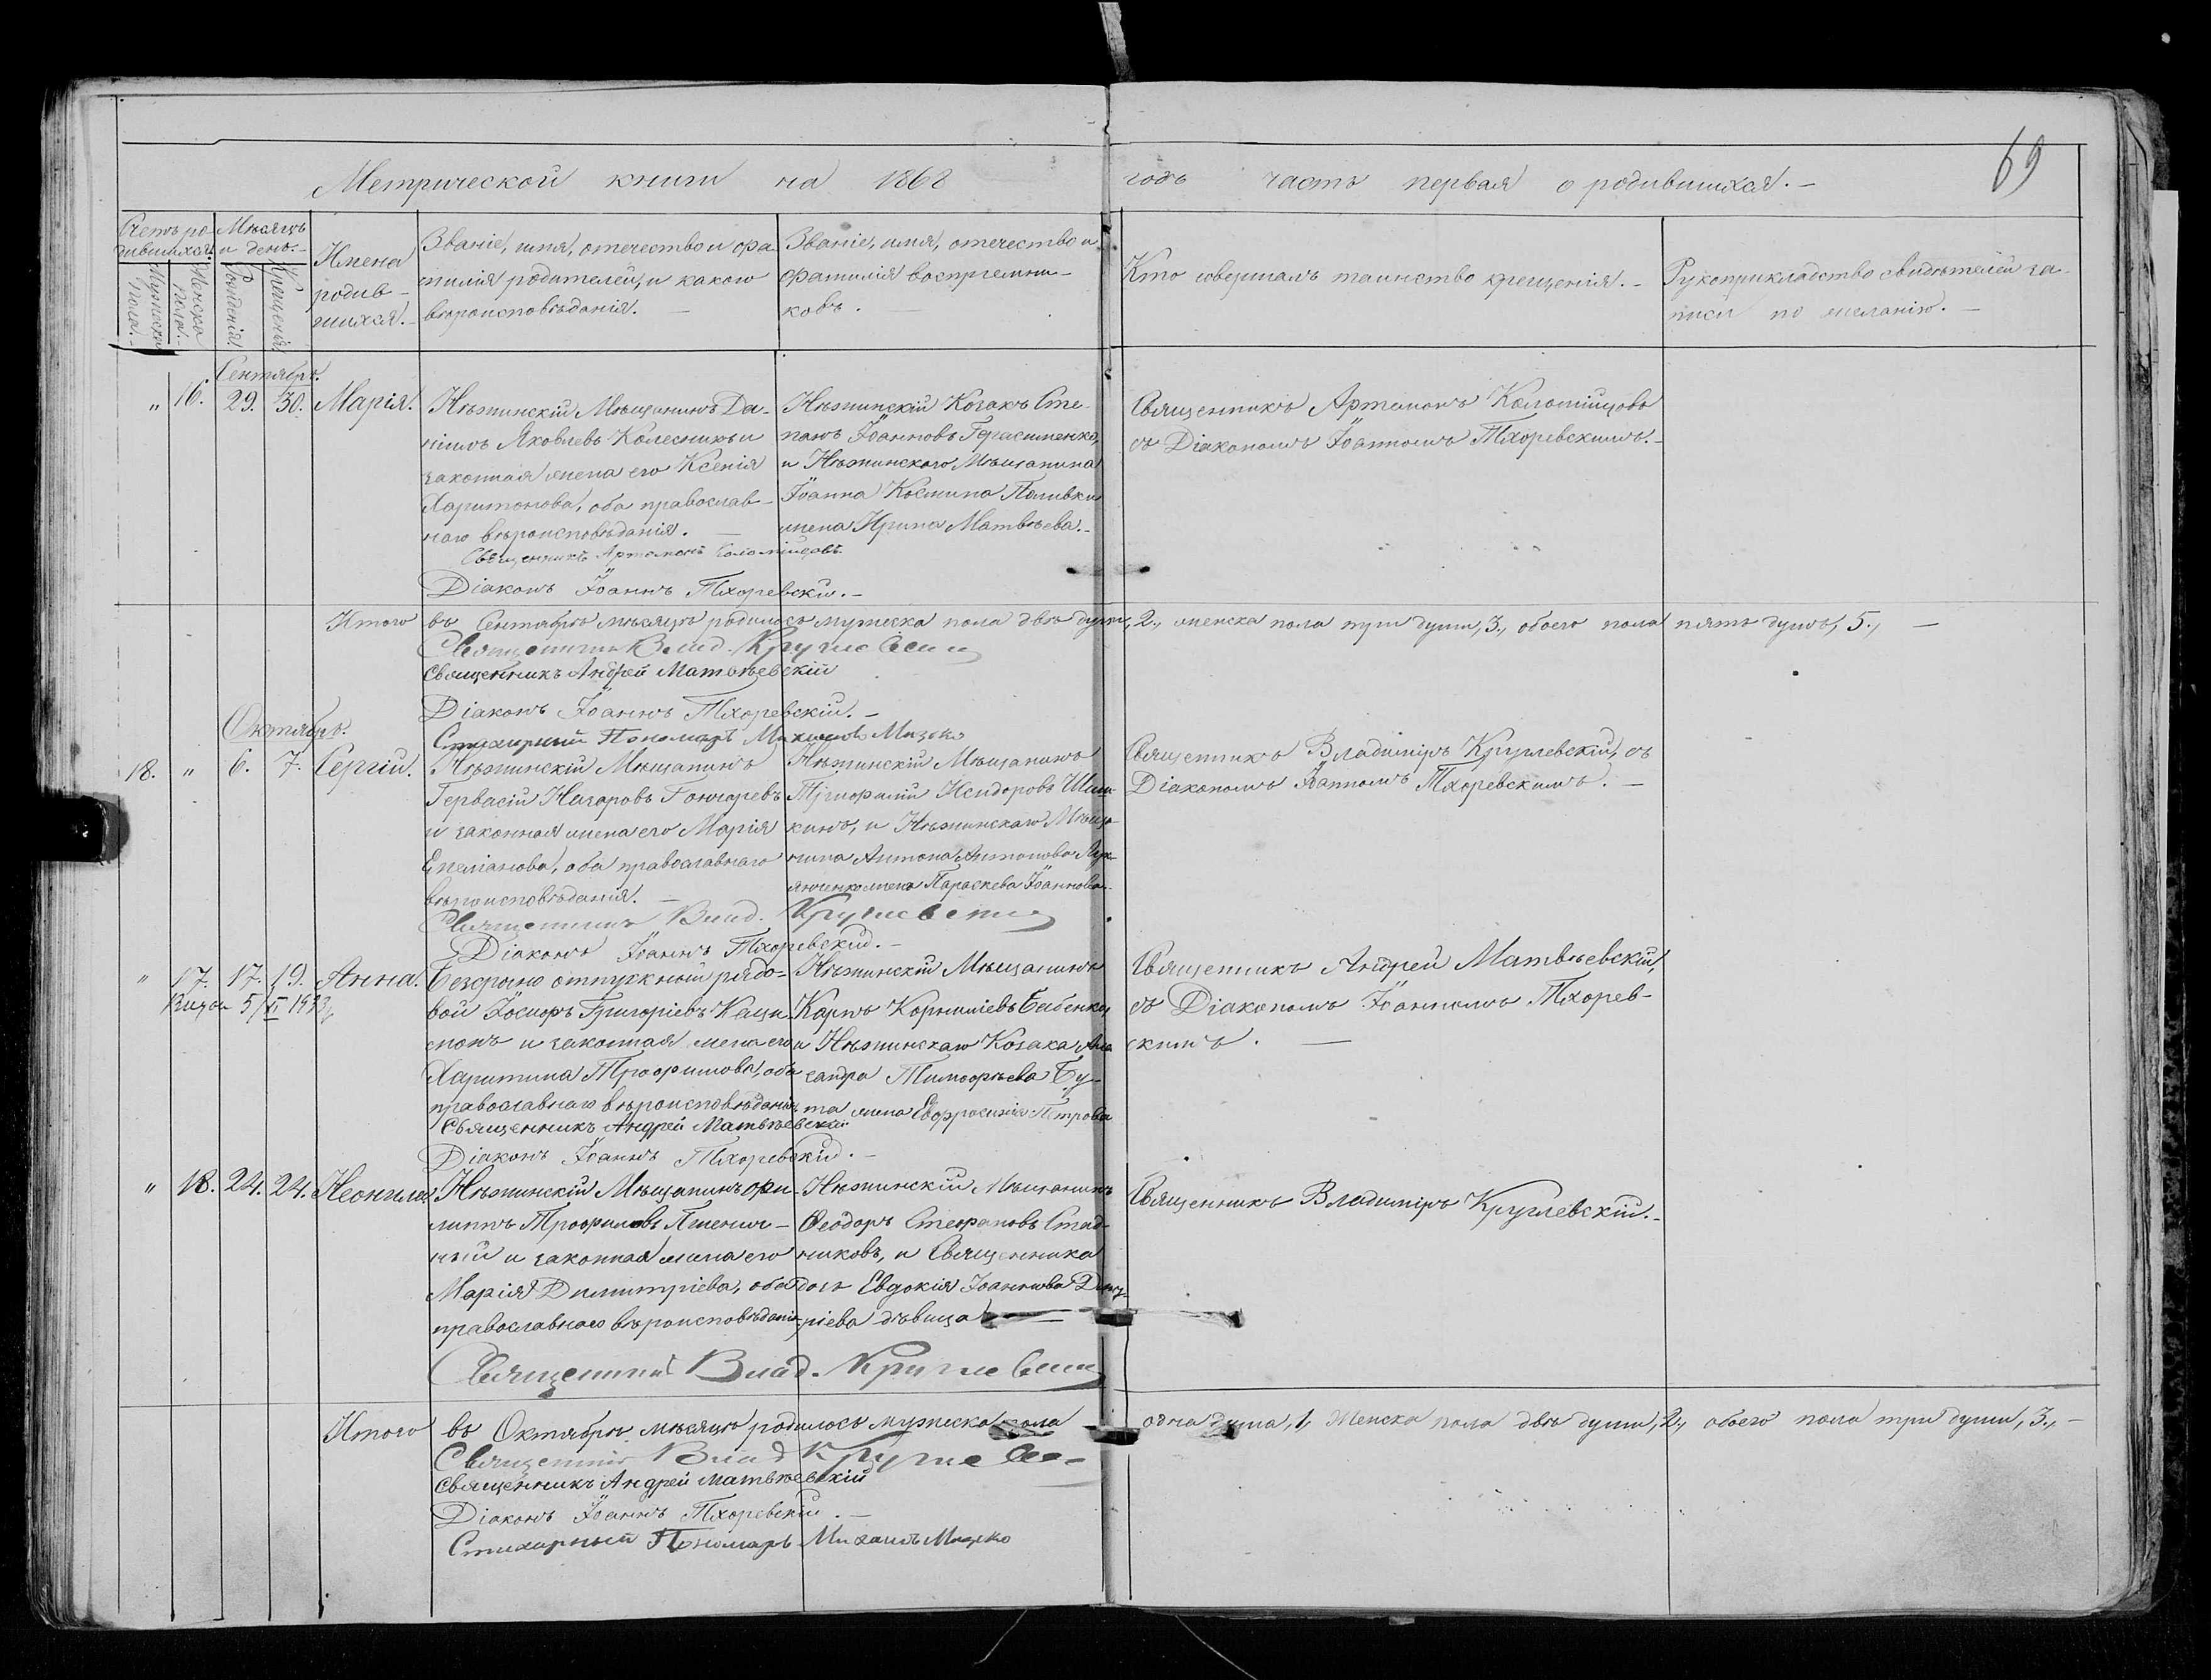 69
Метрической книги на 1868 годъ часть первая о родившихся. –
Счетъ родившихся.
Мужеска пола. –
Женска пола. –
Мѣсяцъ и день. –
Рожденія.
Крещенія.
Имена
родив–
шихся. –
Званіе, имя, отечество и фа–
милія родителей, и какого
вѣроисповѣданія. –
Званіе, имя, отечество и
фамилія воспріемни–
ковъ. –
Кто совершалъ таинство крещенія. –
Рукоприкладство свидѣтелей за–
писи по желанію. –
Сентябрь.
" 16. 29. 30. Марія.
Нѣжинскій Мѣщанинъ Да–
ніилъ Яковлевъ Колесникъ и
законная жена его Ксенія
Харитонова, оба православ–
наго вѣроисповѣданія. –
Нѣжинскій Козакъ Сте–
панъ Іоанновъ Герасименко,
и Нѣжинскаго Мѣщанина
Іоанна Космина Поливки
жена Ирина Матвѣева. –
Священникъ Артемонъ Коломійцовъ
съ Діакономъ Іоанномъ Тхоревскимъ. –
Священникъ Артемонъ Коломійцовъ
Діаконъ Іоаннъ Тхоревскій. –
Итого въ Сентябрѣ мѣсяцѣ родилось мужеска пола двѣ души, 2., женска пола три души, 3., обоего пола пять душъ, 5., –
Священникъ Влад. Круглевскій
Священникъ Андрей Матвѣевскій
Діаконъ Іоаннъ Тхоревскій. –
Стихарный Пономарь Михаилъ Мацко
Октябрь.
18. " 6. 7. Сергій.
Нѣжинскій Мѣщанинъ
Гервасій Назаровъ Гончаревъ
и законная жена его Марія
Емеліанова, оба православнаго
вѣроисповѣданія. –
Нѣжинскій Мѣщанинъ
Трифилій Исидоровъ Шиш–
кинъ, и Нѣжинскаго Мѣща–
нина Антона Антонова Лук–
янченко жена Параскева Іоаннова. –
Священникъ Владиміръ Круглевскій, съ
Діакономъ Іоанномъ Тхоревскимъ. –
Священникъ Влад. Круглевскій
Діаконъ Іоаннъ Тхоревскій. –
" 17. 17. 19. Анна.
5/XI 1933
Безсрочно отпускной рядо–
вой Іосифъ Григоріевъ Каци–
монъ и законная жена его
Харитина Трофимова, оба
православнаго вѣроисповѣданія.
Нѣжинскій Мѣщанинъ
Карпъ Корниліевъ Бабенко,
и Нѣжинскаго Козака Алек–
сандра Тимофѣева Бу–
та жена Евфросинія Петрова
Священникъ Андрей Матвѣевскій,
съ Діакономъ Іоанномъ Тхорев–
скимъ. –
Священникъ Андрей Матвѣевскій
Діаконъ Іоаннъ Тхоревскій. –
" 18. 24. 24. Неонила
Нѣжинскій Мѣщанинъ Фи–
липпъ Трофимовъ Пшенич–
ный и законная жена его
Марія Димитріева, оба
православнаго вѣроисповѣданія
Нѣжинскій Мѣщанинъ
Ѳеодоръ Стефановъ Стад–
никовъ, и Священника
дочь Евдокія Іоаннова Дмит–
ріева дѣвица
Священникъ Владиміръ Круглевскій. –
Священникъ Влад. Круглевскій
Итого въ Октябрѣ мѣсяцѣ родилось мужеска пола одна душа, 1, Женска пола двѣ души, 2., обоего пола три души, 3., –
Священникъ Влад Круглевскій
Священникъ Андрей Матвѣевскій
Діаконъ Іоаннъ Тхоревскій. –
Стихарный Пономарь Михаилъ Мацко